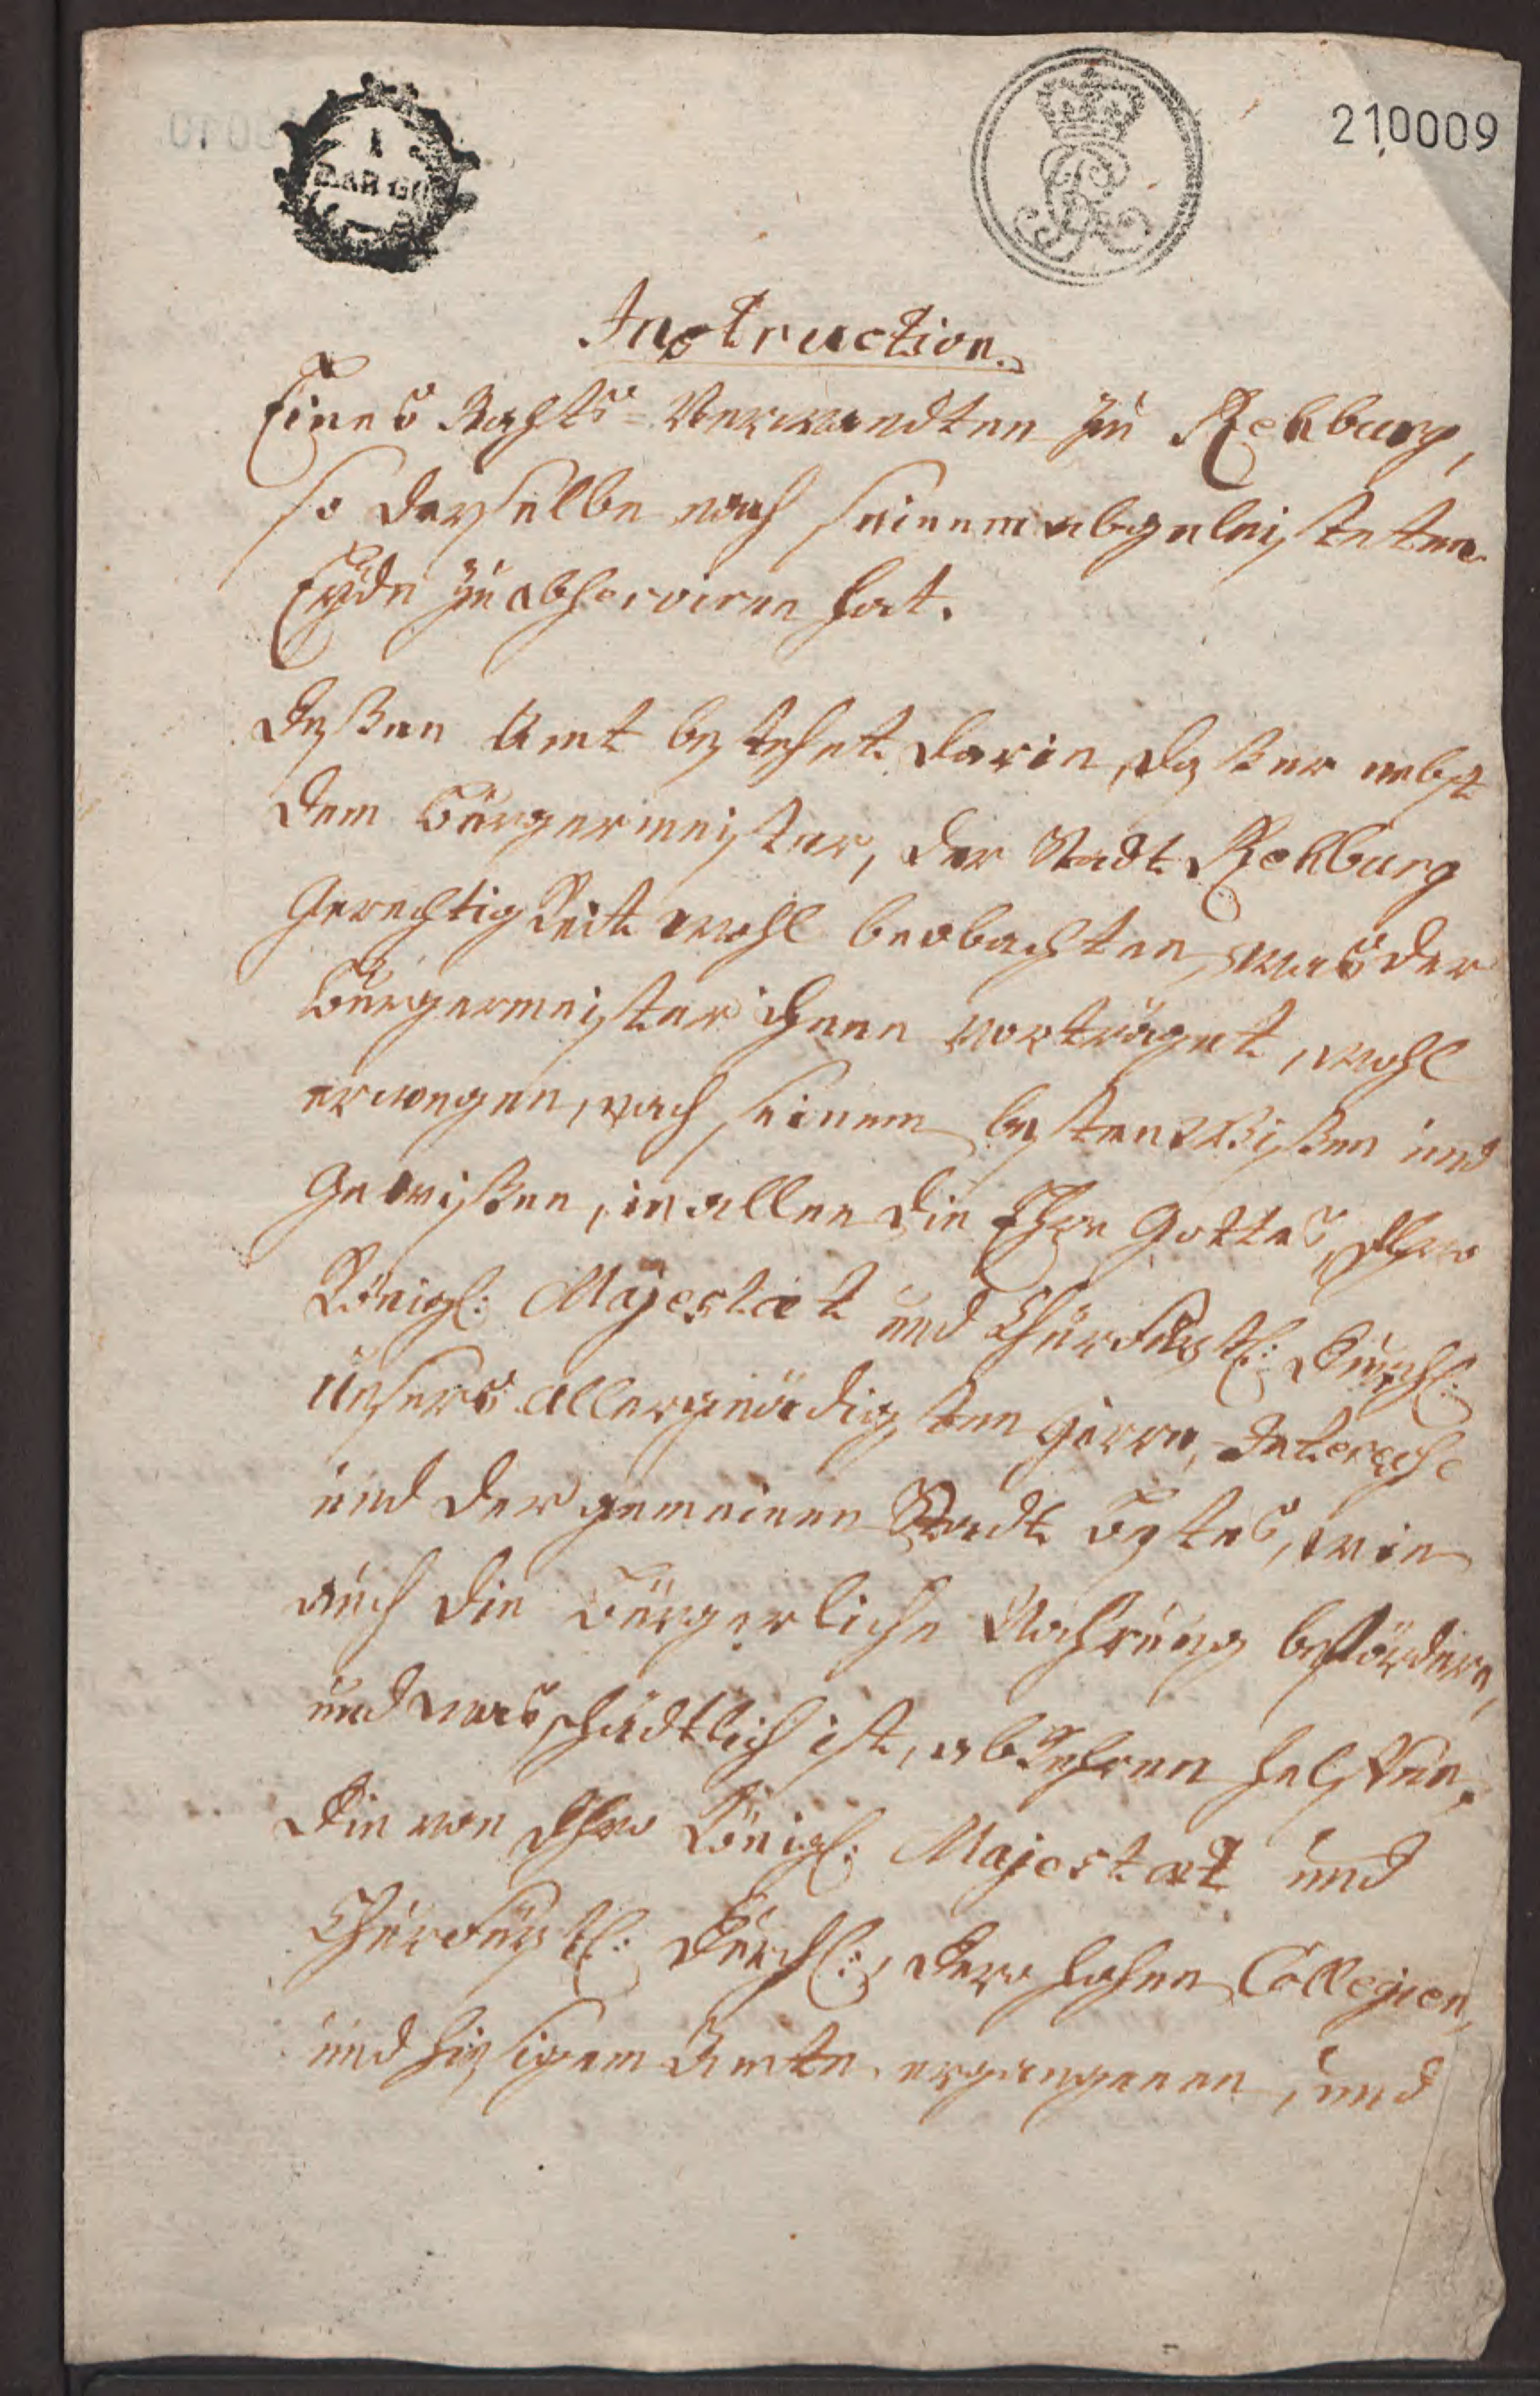 210009
Instruction.
Eines Rahts-Verwandten zu Rehburg,
so derselbe nach seinem abgeleisteten
Eyde zu observiren hat.
Deßen Amt bestehet darin, daß er nebst
dem Bürgermeister, der Stadt Rehburg
Gerechtigkeit wohl beobachten, was der
Bürgermeister ihnen vorträget, wohl
erwegen, nach seinem besten Wißen und
Gewißen, in allen die Ehre Gottes, Ihro
Königl: Majestæt und Churfürstl: Durchl:
unsers allergnädigsten Herrn, Interesse
und der gemeinen Stadt Bestes, wie
auch die Bürgerliche Nahrung befördern,
und was schädtlich ist, abkehren helffen,
die von Ihro Königl: Majestæt und
Churfürstl: Durchl:, dero hohen Collegien,
und hiesigem Amte ergangenen, und